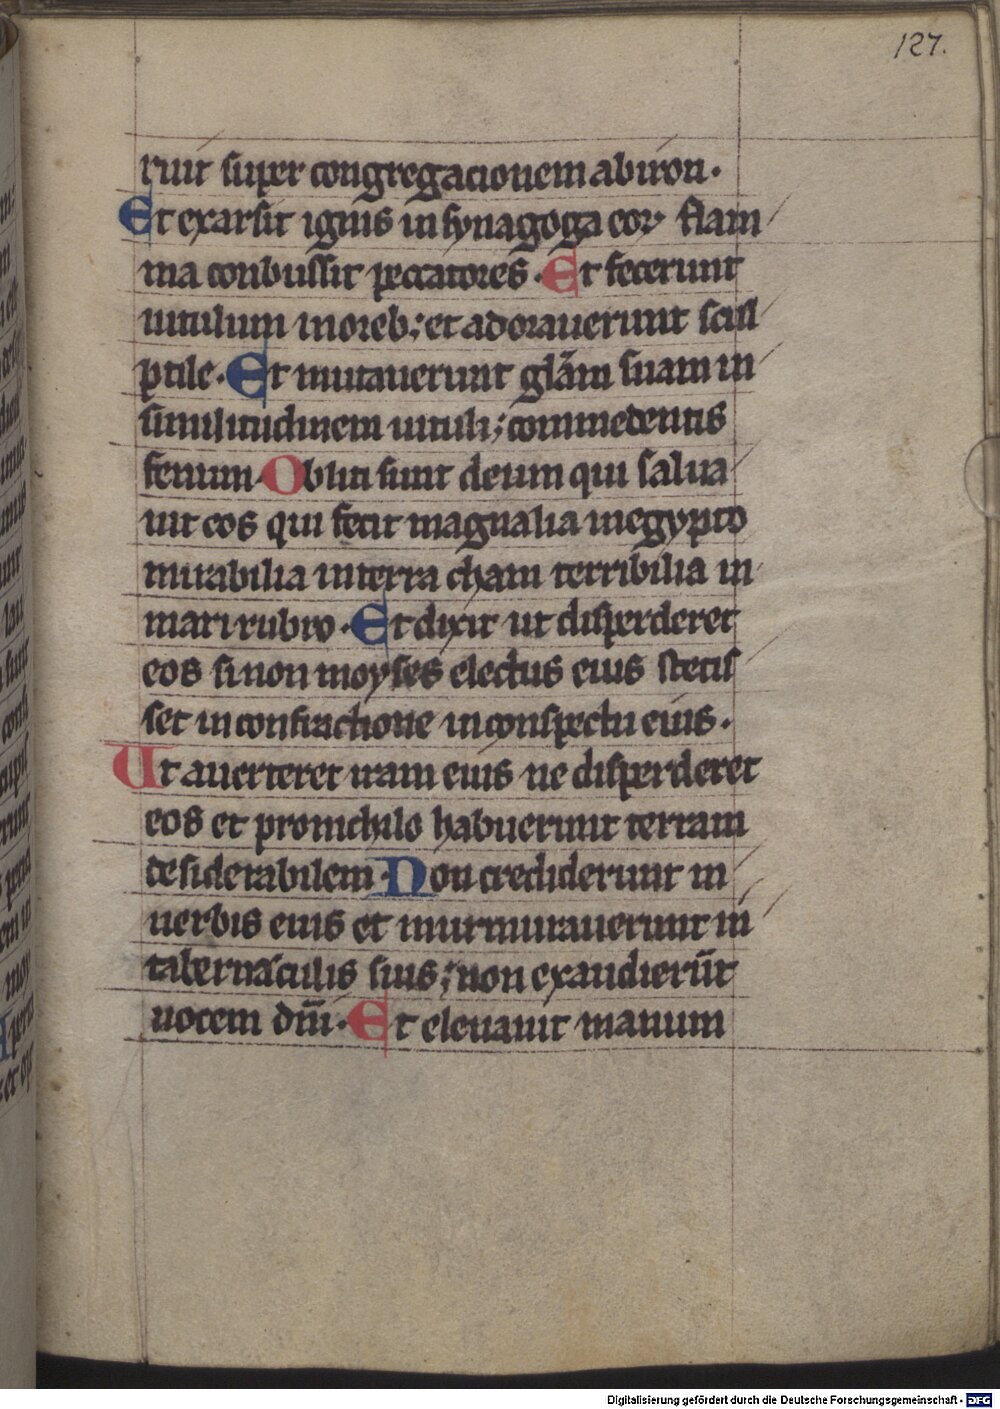 127.
ruit super congregacionem abiron.
Et exarsit ignis in synagoga eoꝝ flam
ma conbussit peccatores. Et fecerunt
uitulum in oreb; et adorauerunt scul
ptile. Et mutauerunt glãm suam in
similitudinem uituli; commedentis
fenum. Obliti sunt deum qui salua
uit eos qui fecit magnalia in egypto
mirabilia in terra cham terribilia in
mari rubro. Et dixit ut disperderet
eos si non moyses electus eius stetis
set in confractione in conspectu eius.
Ut auerteret iram eius ne disperderet
eos et pro nichilo habuerunt terram
desiderabilem. Non crediderunt in
uerbis eius et murmurauerunt in
tabernaculis suis; non exaudierũt
uocem dñi. Et eleuauit manum
Digitalisierung gefördert durch die Deutsche Forschungsgemeinschaft - DFG